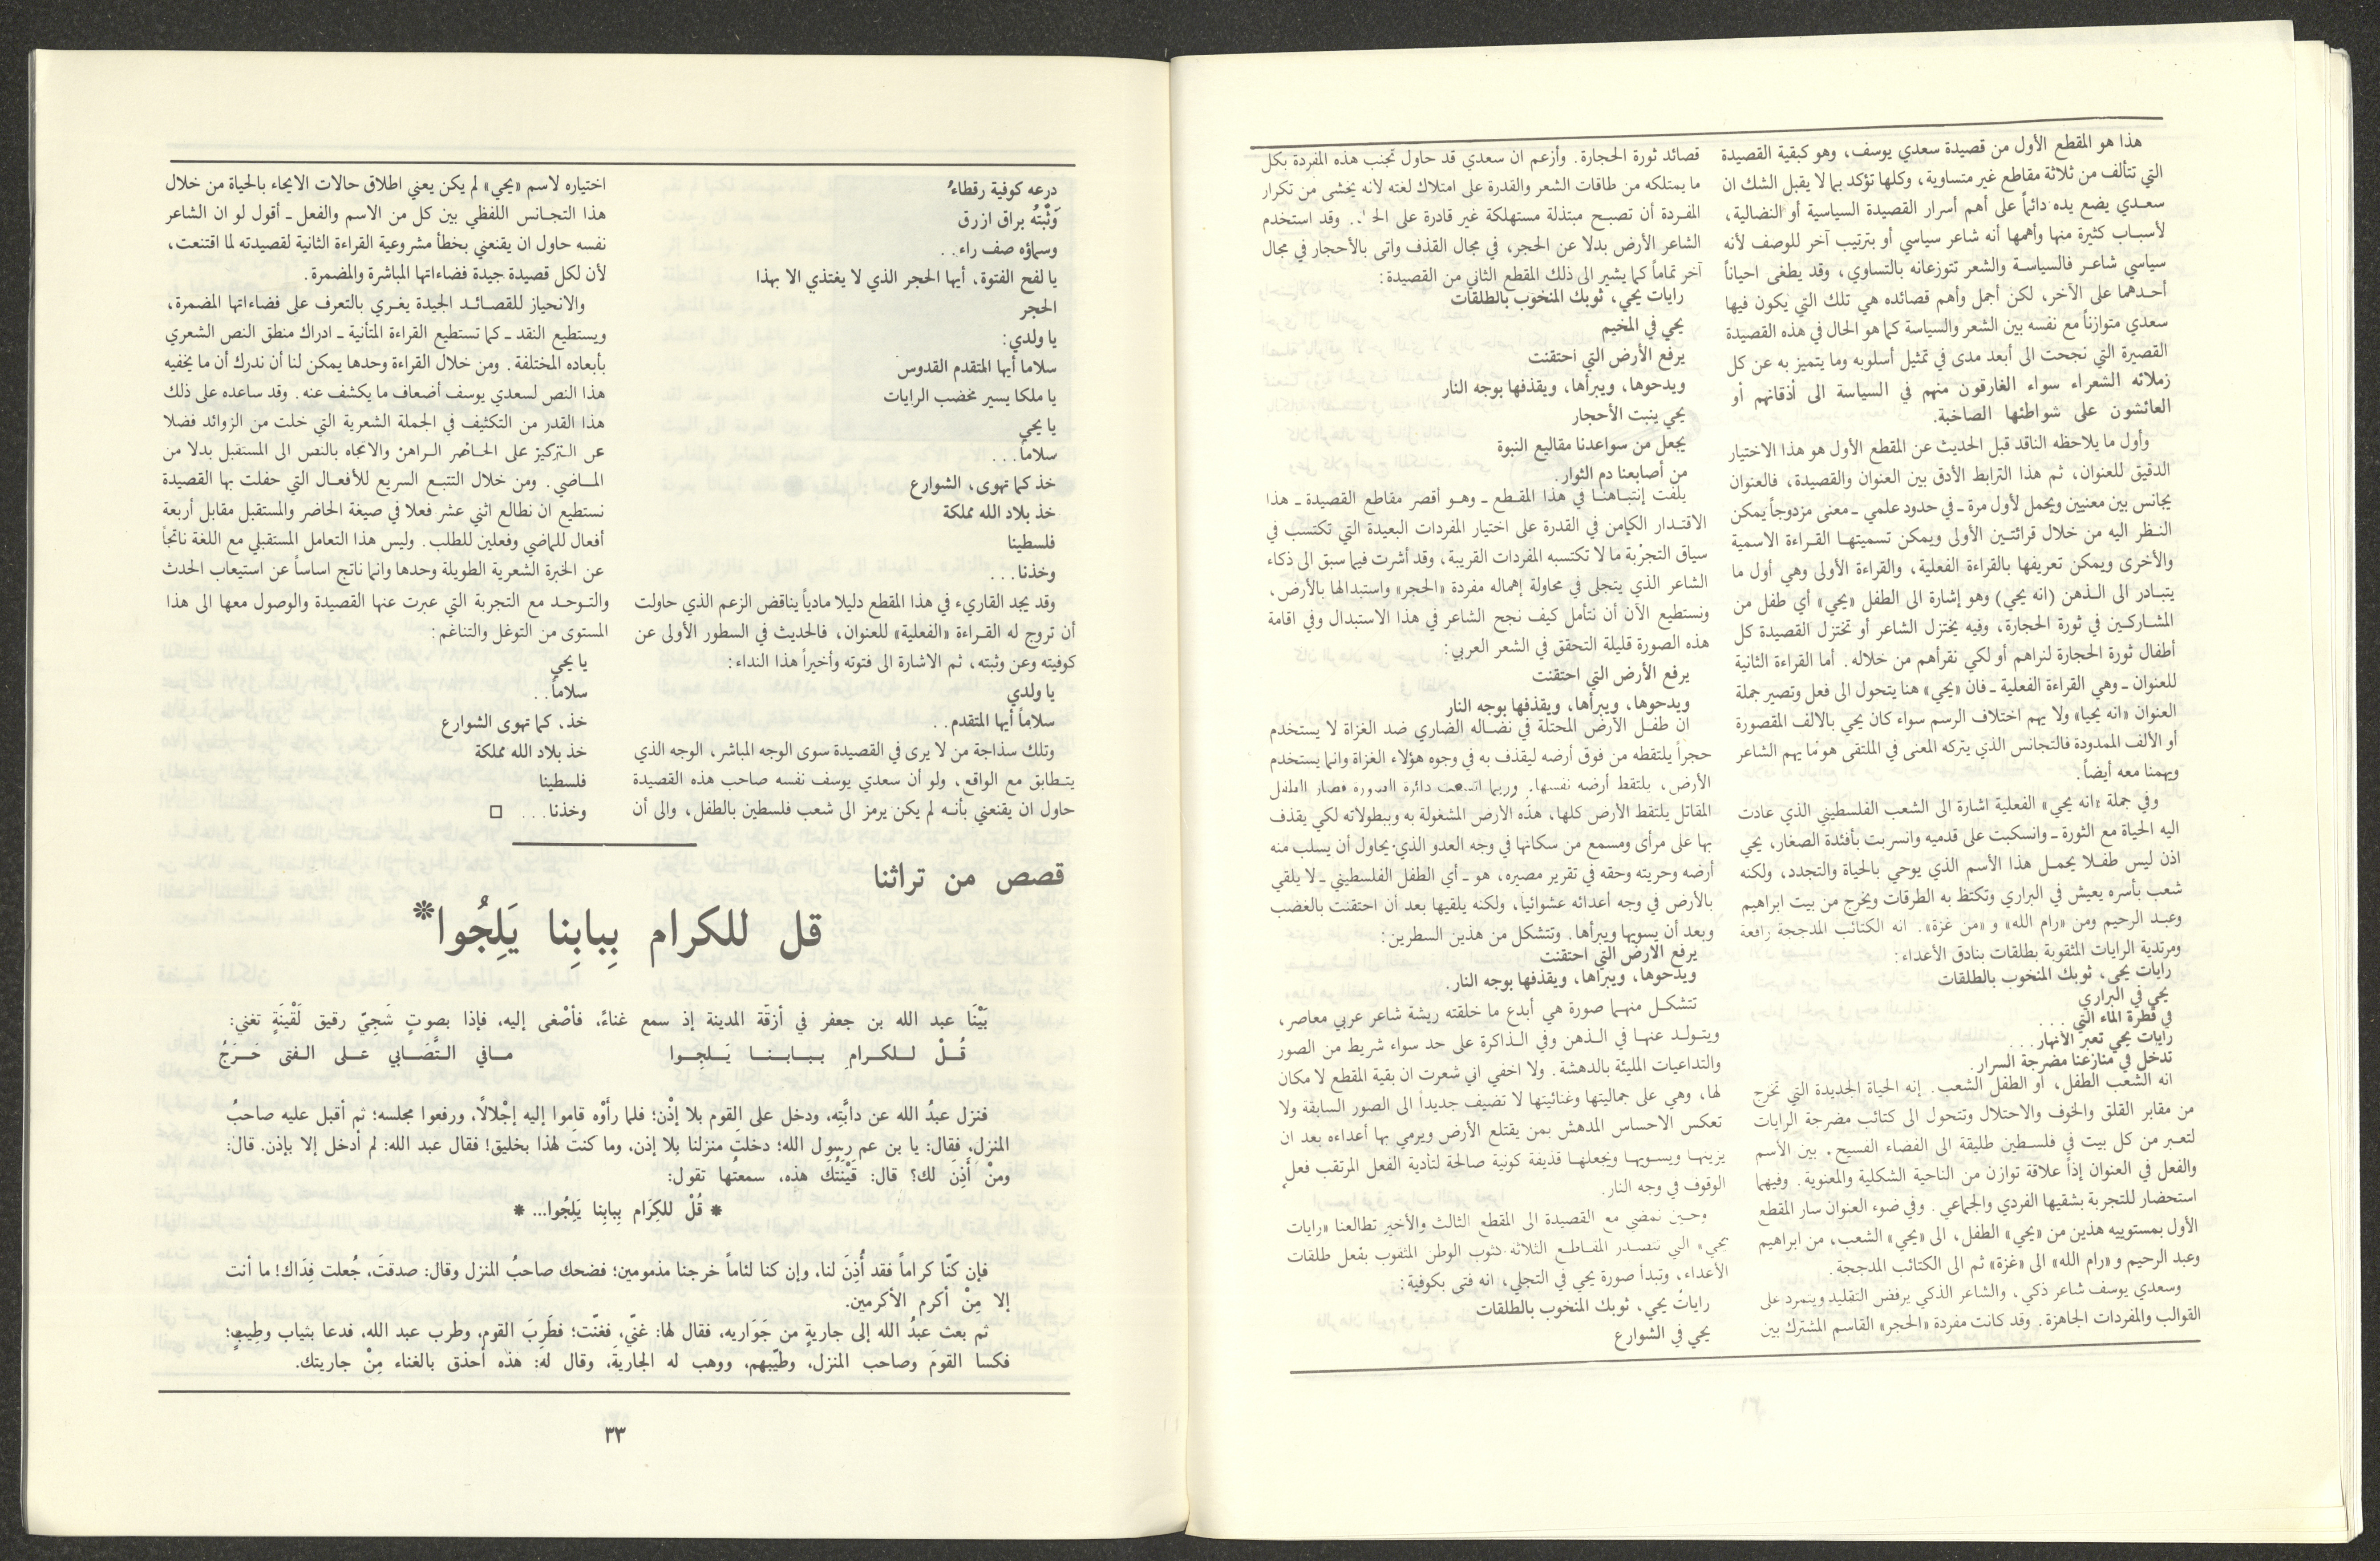 هذا هو المقطع الأول من قصيدة سعدي يوسف، وهو كبقية القصيدة
التي تتألف من ثلاثة مقاطع غير متساوية، وكلها تؤكد بما لا يقبل الشك ان
سعدي يضع يده دائماً على أهم أسرار القصيدة السياسية أو النضالية،
لأسباب كثيرة منها وأهمها أنه شاعر سياسي أو بترتيب آخر للوصف لأنه
سياسي شاعر فالسياسة والشعر تتوزعانه بالتساوي، وقد يطغى احياناً
أحدهما على الآخر، لكن أجمل وأهم قصائده هي تلك التي يكون فيها
سعدي متوازناً مع نفسه بين الشعر والسياسة كما هو الحال في هذه القصيدة
القصيرة التي نجحت الى أبعد مدى في تمثيل أسلوبه وما يتميز به عن كل
زملائه الشعراء سواء الغارقون منهم في السياسة الى أذقانهم أو
العائشون على شواطئها الصاخبة.
وأول ما يلاحظه الناقد قبل الحديث عن المقطع الأول هو هذا الاختيار
الدقيق للعنوان، ثم هذا الترابط الأدق بين العنوان والقصيدة، فالعنوان
يجانس بين معنيين ويحمل لأول مرة ـ في حدود علمي ـ معنى مزدوجاً يمكن
النظر اليه من خلال قرائتين الأولى ويمكن تسميتها القراءة الاسمية
والأخرى ويمكن تعريفها بالقراءة الفعلية، والقراءة الأولى وهي أول ما
يتبادر الى الذهن (انه يحيى) وهو إشارة الى الطفل «يحيى» أي طفل من
المشاركين في ثورة الحجارة، وفيه يختزل الشاعر أو تختزل القصيدة كل
أطفال ثورة الحجارة لنراهم أو لكي نقرأهم من خلاله. أما القراءة الثانية
للعنوان ـ وهي القراءة الفعلية ـ فان «يحيى» هنا يتحول الى فعل وتصير جملة
العنوان «انه يحيا» ولا يهم اختلاف الرسم سواء كان يحيى بالالف المقصورة
أو الألف الممدودة فالتجانس الذي يتركه المعنى في الملتقى هو ما يهم الشاعر
ويهمنا معه أيضاً.
وفي جملة «انه يحيى» الفعلية اشارة الى الشعب الفلسطيني الذي عادت
اليه الحياة مع الثورة ـ وانسكبت على قدميه وانسربت بأفئدة الصغار، يحيى
اذن ليس طفلا يحمل هذا الأسم الذي يوحي بالحياة والتجدد، ولكنه
شعب بأسره يعيش في البراري وتكتظ به الطرقات ويخرج من بيت ابراهيم
وعبد الرحيم ومن «رام الله» و «من غزة». انه الكتائب المدججة رافعة
ومرتدية الرايات المثقوبة بطلقات بنادق الأعداء:
رايات يحيى، ثوبك المنخوب بالطلقات
يحيى في البراري
في قطرة الماء التي . . .
رايات يحيى تعبر الأنهار. . .
تدخل في منازعنا مضرجة السرار.
انه الشعب الطفل، أو الطفل الشعب. إنه الحياة الجديدة التي تخرج
من مقابر القلق والخوف والاحتلال وتتحول الى كتائب مضرجة الرايات
لتعبر من كل بيت في فلسطين طليقة الى الفضاء الفسيح. بين الأسم
والفعل في العنوان إذاً علاقة توازن من الناحية الشكلية والمعنوية. وفيهما
استحضار للتجربة بشقيها الفردي والجماعي. وفي ضوء العنوان سار المقطع
الأول بمستوييه هذين من «يحيى» الطفل، الى «يحيى» الشعب، من ابراهيم
وعبد الرحيم و «رام الله» الى «غزة» ثم الى الكتائب المدججة.
وسعدي يوسف شاعر ذكي، والشاعر الذكي يرفض التقليد ويتمرد على
القوالب والمفردات الجاهزة. وقد كانت مفردة «الحجر» القاسم المشترك بين
قصائد ثورة الحجارة. وأزعم ان سعدي قد حاول تجنب هذه المفردة بكل
ما يمتلكه من طاقات الشعر والقدرة على امتلاك لغته لأنه يخشى من تكرار
المفردة أن تصبح مبتذلة مستهلكة غير قادرة على . وقد استخدم
الشاعر الأرض بدلا عن الحجر، في مجال القذف واتى بالأحجار في مجال
آخر تماماً كما يشير الى ذلك المقطع الثاني من القصيدة:
رايات يحيى، ثوبك المنخوب بالطلقات
يحيى في المخيم
يرفع الأرض التي احتقنت
ويدحوها، ويبرأها، ويقذفها بوجه النار
يحيى ينبت الأحجار
يجعل من سواعدنا مقاليع النبوة
من أصابعنا دم الثوار.
يلفت إنتباهنا في هذا المقطع ـ وهو أقصر مقاطع القصيدة ـ هذا
الاقتدار الكامن في القدرة على اختيار المفردات البعيدة التي تكتسب في
سياق التجربة ما لا تكتسبه المفردات القريبة، وقد أشرت فيما سبق الى ذكاء
الشاعر الذي يتجلى في محاولة إهماله مفردة «الحجر» واستبدالها بالأرض،
ونستطيع الآن أن نتأمل كيف نجح الشاعر في هذا الاستبدال وفي اقامة
هذه الصورة قليلة التحقق في الشعر العربي:
يرفع الأرض التي احتقنت
ويدحوها، ويبرأها، ويقذفها بوجه النار
ان طفل الأرض المحتلة في نضاله الضاري ضد الغزاة لا يستخدم
حجراً يلتقطه من فوق أرضه ليقذف به في وجوه هؤلاء الغزاة وانما يستخدم
الأرض، يلتقط أرضه نفسها. وربما اتسعت دائرة الصورة فصار الطفل
المقاتل يلتقط الأرض كلها، هذه الأرض المشغولة به وببطولاته لكي يقذف
بها على مرأى ومسمع من سكانها في وجه العدو الذي يحاول أن يسلب منه
أرضه وحريته وحقه في تقرير مصيره، هو ـ أي الطفل الفلسطيني ـ لا يلقي
بالأرض في وجه أعدائه عشوائياً، ولكنه يلقيها بعد أن احتقنت بالغضب
وبعد أن يسويها ويبرأها. وتتشكل من هذين السطرين:
يرفع الارض التي احتقنت
ويدحوها، ويبرأها، ويقذفها بوجه النار.
تتشكل منهما صورة هي أبدع ما خلقته ريشة شاعر عربي معاصر،
ويتولد عنها في الذهن وفي الذاكرة على حد سواء شريط من الصور
والتداعيات المليئة بالدهشة. ولا اخفي اني شعرت ان بقية المقطع لا مكان
لها، وهي على جماليتها وغنائيتها لا تضيف جديداً الى الصور السابقة ولا
تعكس الاحساس المدهش بمن يقتلع الأرض ويرمي بها أعداءه بعد ان
يزينها ويسويها ويجعلها قذيفة كونية صالحة لتأدية الفعل المرتقب فعل
الوقوف في وجه النار.
وحين نمضي مع القصيدة الى المقطع الثالث والأخير تطالعنا «رايات
يحيى» التي تتصدر المقاطع الثلاثة كثوب الوطن المثقوب بفعل طلقات
الأعداء، وتبدأ صورة يحيى في التجلي، انه فتى بكوفية:
راياتُ يحيى، ثوبك المنخوب بالطلقات
يحيى في الشوارع
درعه كوفية رقطاءُ
وَثْبتُه براق ازرق
وسماؤه صف راء. .
يا لفح الفتوة، أيها الحجر الذي لا يغتذي الا بهذا
الحجر
يا ولدي:
سلاما أيها المتقدم القدوس
يا ملكا يسير مخضب الرايات
يا يحيى
سلاماً. . .
خذ كما تهوى، الشوارع
خذ بلاد الله مملكة
فلسطينا
وخذنا. . .
وقد يجد القاريء في هذا المقطع دليلا مادياً يناقض الزعم الذي حاولت
أن تروج له القراءة «الفعلية» للعنوان، فالحديث في السطور الأولى عن
كوفيته وعن وثبته، ثم الاشارة الى فتوته وأخيراً هذا النداء:
يا ولدي
سلاماً أيها المتقدم. .
وتلك سذاجة من لا يرى في القصيدة سوى الوجه المباشر، الوجه الذي
يتطابق مع الواقع، ولو أن سعدي يوسف نفسه صاحب هذه القصيدة
حاول ان يقنعني بأنه لم يكن يرمز الى شعب فلسطين بالطفل، والى أن
اختياره لاسم «يحيى» لم يكن يعني اطلاق حالات الايحاء بالحياة من خلال
هذا التجانس اللفظي بين كل من الاسم والفعل ـ أقول لو ان الشاعر
نفسه حاول ان يقنعني بخطأ مشروعية القراءة الثانية لقصيدته لما اقتنعت،
لأن لكل قصيدة جيدة فضاءاتها المباشرة والمضمرة.
والانحياز للقصائد الجيدة يغري بالتعرف على فضاءاتها المضمرة،
ويستطيع النقد ـ كما تستطيع القراءة المتأنية ـ ادراك منطق النص الشعري
بأبعاده المختلفة. ومن خلال القراءة وحدها يمكن لنا أن ندرك أن ما يخفيه
هذا النص لسعدي يوسف أضعاف ما يكشف عنه. وقد ساعده على ذلك
هذا القدر من التكثيف في الجملة الشعرية التي خلت من الزوائد فضلا
عن التركيز على الحاضر الراهن والاتجاه بالنص الى المستقبل بدلا من
الماضي. ومن خلال التتبع السريع للأفعال التي حفلت بها القصيدة
نستطيع ان نطالع اثني عشر فعلا في صيغة الحاضر والمستقبل مقابل أربعة
أفعال للماضي وفعلين للطلب. وليس هذا التعامل المستقبلي مع اللغة ناتجاً
عن الخبرة الشعرية الطويلة وحدها وانما ناتج اساساً عن استيعاب الحدث
والتوحد مع التجربة التي عبرت عنها القصيدة والوصول معها الى هذا
المستوى من التوغل والتناغم:
يا يحيى
سلاماً. .
خذ، كما تهوى الشوارع
خذ بلاد الله مملكة
فلسطينا
وخذنا. . . □
قصص من تراثنا
قل للكرام بِبابِنا يَلِجُوا*
بَيْنَا عبد الله بن جعفر في أزقّة المدينة إذ سمع غناءً، فأصْغى إليه، فإذا بصوتٍ شَجِيّ رقيق لَقْينَةٍ تغني:
قُـلْ للكرامِ ببابنا يَلجوا مافي التَّصَابي على الفتى حَرَجُ
فنزل عبدُ الله عن دابَّتِه، ودخل على القوم بلا إذْن؛ فلما رأوْه قاموا إليه إجْلالاً، ورفعوا مجلسه؛ ثم أقبل عليه صاحبُ
المنزل، فقال: يا بن عم رسول الله؛ دخلتَ منزلنا بلا إذن، وما كنتَ لهذا بخليق! فقال عبد الله: لم أدخل إلا بإذن. قال:
ومنْ أَذِنَ لك؟ قال: قَيْنَتُكَ هذه، سمعتُها تقول:
* قُلْ للكِرَام بِبابِنا يَلِجُوا... *
فإن كنّا كراماً فقد أُذِنَ لنا، وإن كنا لئاماً خرجنا مذمومين؛ فضحك صاحبُ المنزل وقال: صدقتَ، جُعلت فِدَاك! ما أنت
إلا مِنْ أكرم الأكرمين.
ثم بعث عبدُ الله إلى جاريةٍ من جَوَاريه، فقال لها: غنّي، فغنّت؛ فطَرِبَ القوم، وطرب عبد الله، فدعا بثياب وطِيبٍ؛
فكسا القومَ وصاحب المنزل، وطيّبهم، ووهب له الجاريةَ، وقال له: هذه أحذق بالغناء مِنْ جاريتك.
٣٣